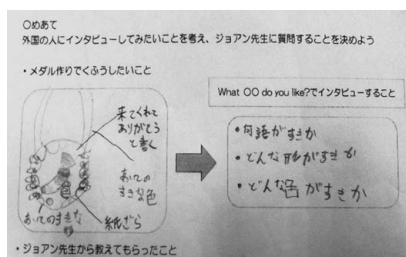 〇めあて
外国の人にインタビューしてみたいことを考え、ジョアン先生に質問することを決めよう
・メダル作りでくふうしたいこと
来てくれて
ありがとう
と書く
あいての
すきな色
紙ざら
あいてのすきな
What 〇〇 do you like?でインタビューすること
・何語がすきか
・どんな形がすきか
・どんな色がすきか
・ジョアン先生から教えてもらったこと